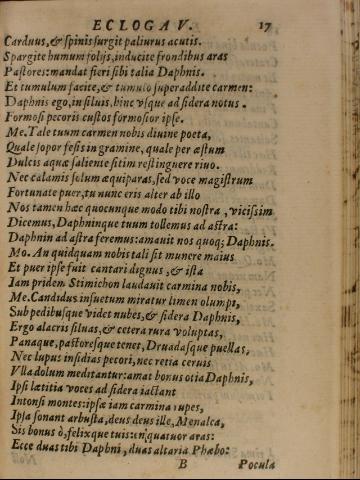 ECLOGA V. 17
Carduus, & spinis surgit paliurus acutis.
Spargite humum folijs, inducite frondibus aras
Pastores: mandat fieri sibi talia Daphnis.
Et tumulum facite, & tumulo superaddite carmen:
Daphnis ego, in siluis, hinc vsque ad sidera notus.
Formosi pecoris custos formosior ipse.
Me. Tale tuum carmen nobis diuine poeta,
Quale sopor fessis in gramine, quale per æstum
Dulcis aquæ saliente sitim restinguere riuo.
Nec calamis solum æquiparas, sed voce magistrum
Fortunate puer, tu nunc eris alter ab illo
Nos tamen hæc quocunque modo tibi nostra, vicissim
Dicemus, Daphninque tuum tollemus ad astra:
Daphnin ad astra feremus: amauit nos quoq; Daphnis.
Mo. An quidquam nobis tali sit munere maius
Et puer ipse fuit cantari dignus, & ista
Iam pridem Stimichon laudauit carmina nobis,
Me. Candidus insuetum miratur limen olumpi,
Sub pedibusque videt nubes, & sidera Daphnis,
Ergo alacris siluas, & cetera rura voluptas,
Panaque, pastoresque tenet, Druadasque puellas,
Nec lupus insidias pecori, nec retia ceruis
Vlla dolum meditantur: amat bonus otia Daphnis,
Ipsi lætitia voces ad sidera iactant
Intonsi montes: ipsæ iam carmina rupes,
Ipsa sonant arbusta, deus deus ille, Menalca,
Sis bonus ô, felixque tuis: en quatuor aras:
Ecce duas tibi Daphni, duas altaria Phæbo:
B Pocula